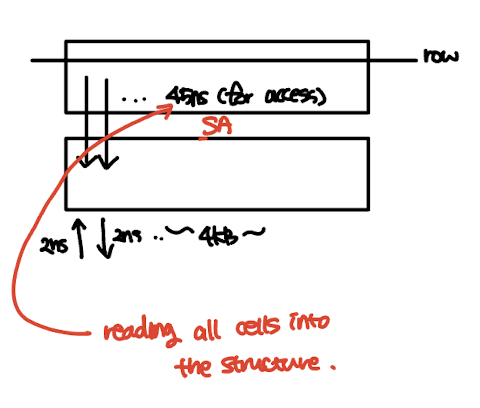 row
... 45ns (for access)
SA
2ns 2ns .. ~ 4kB ~
reading all cells into
the structure.